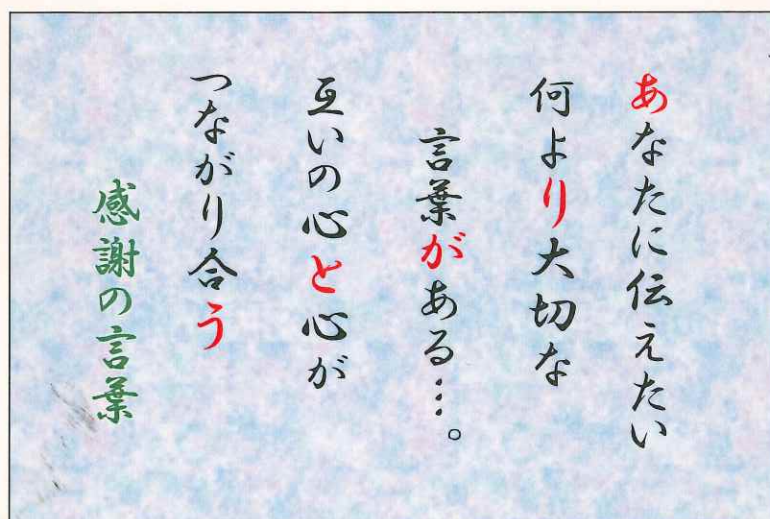 あなたに伝えたい
何より大切な
言葉がある…。
互いの心と心が
つながり合う
感謝の言葉